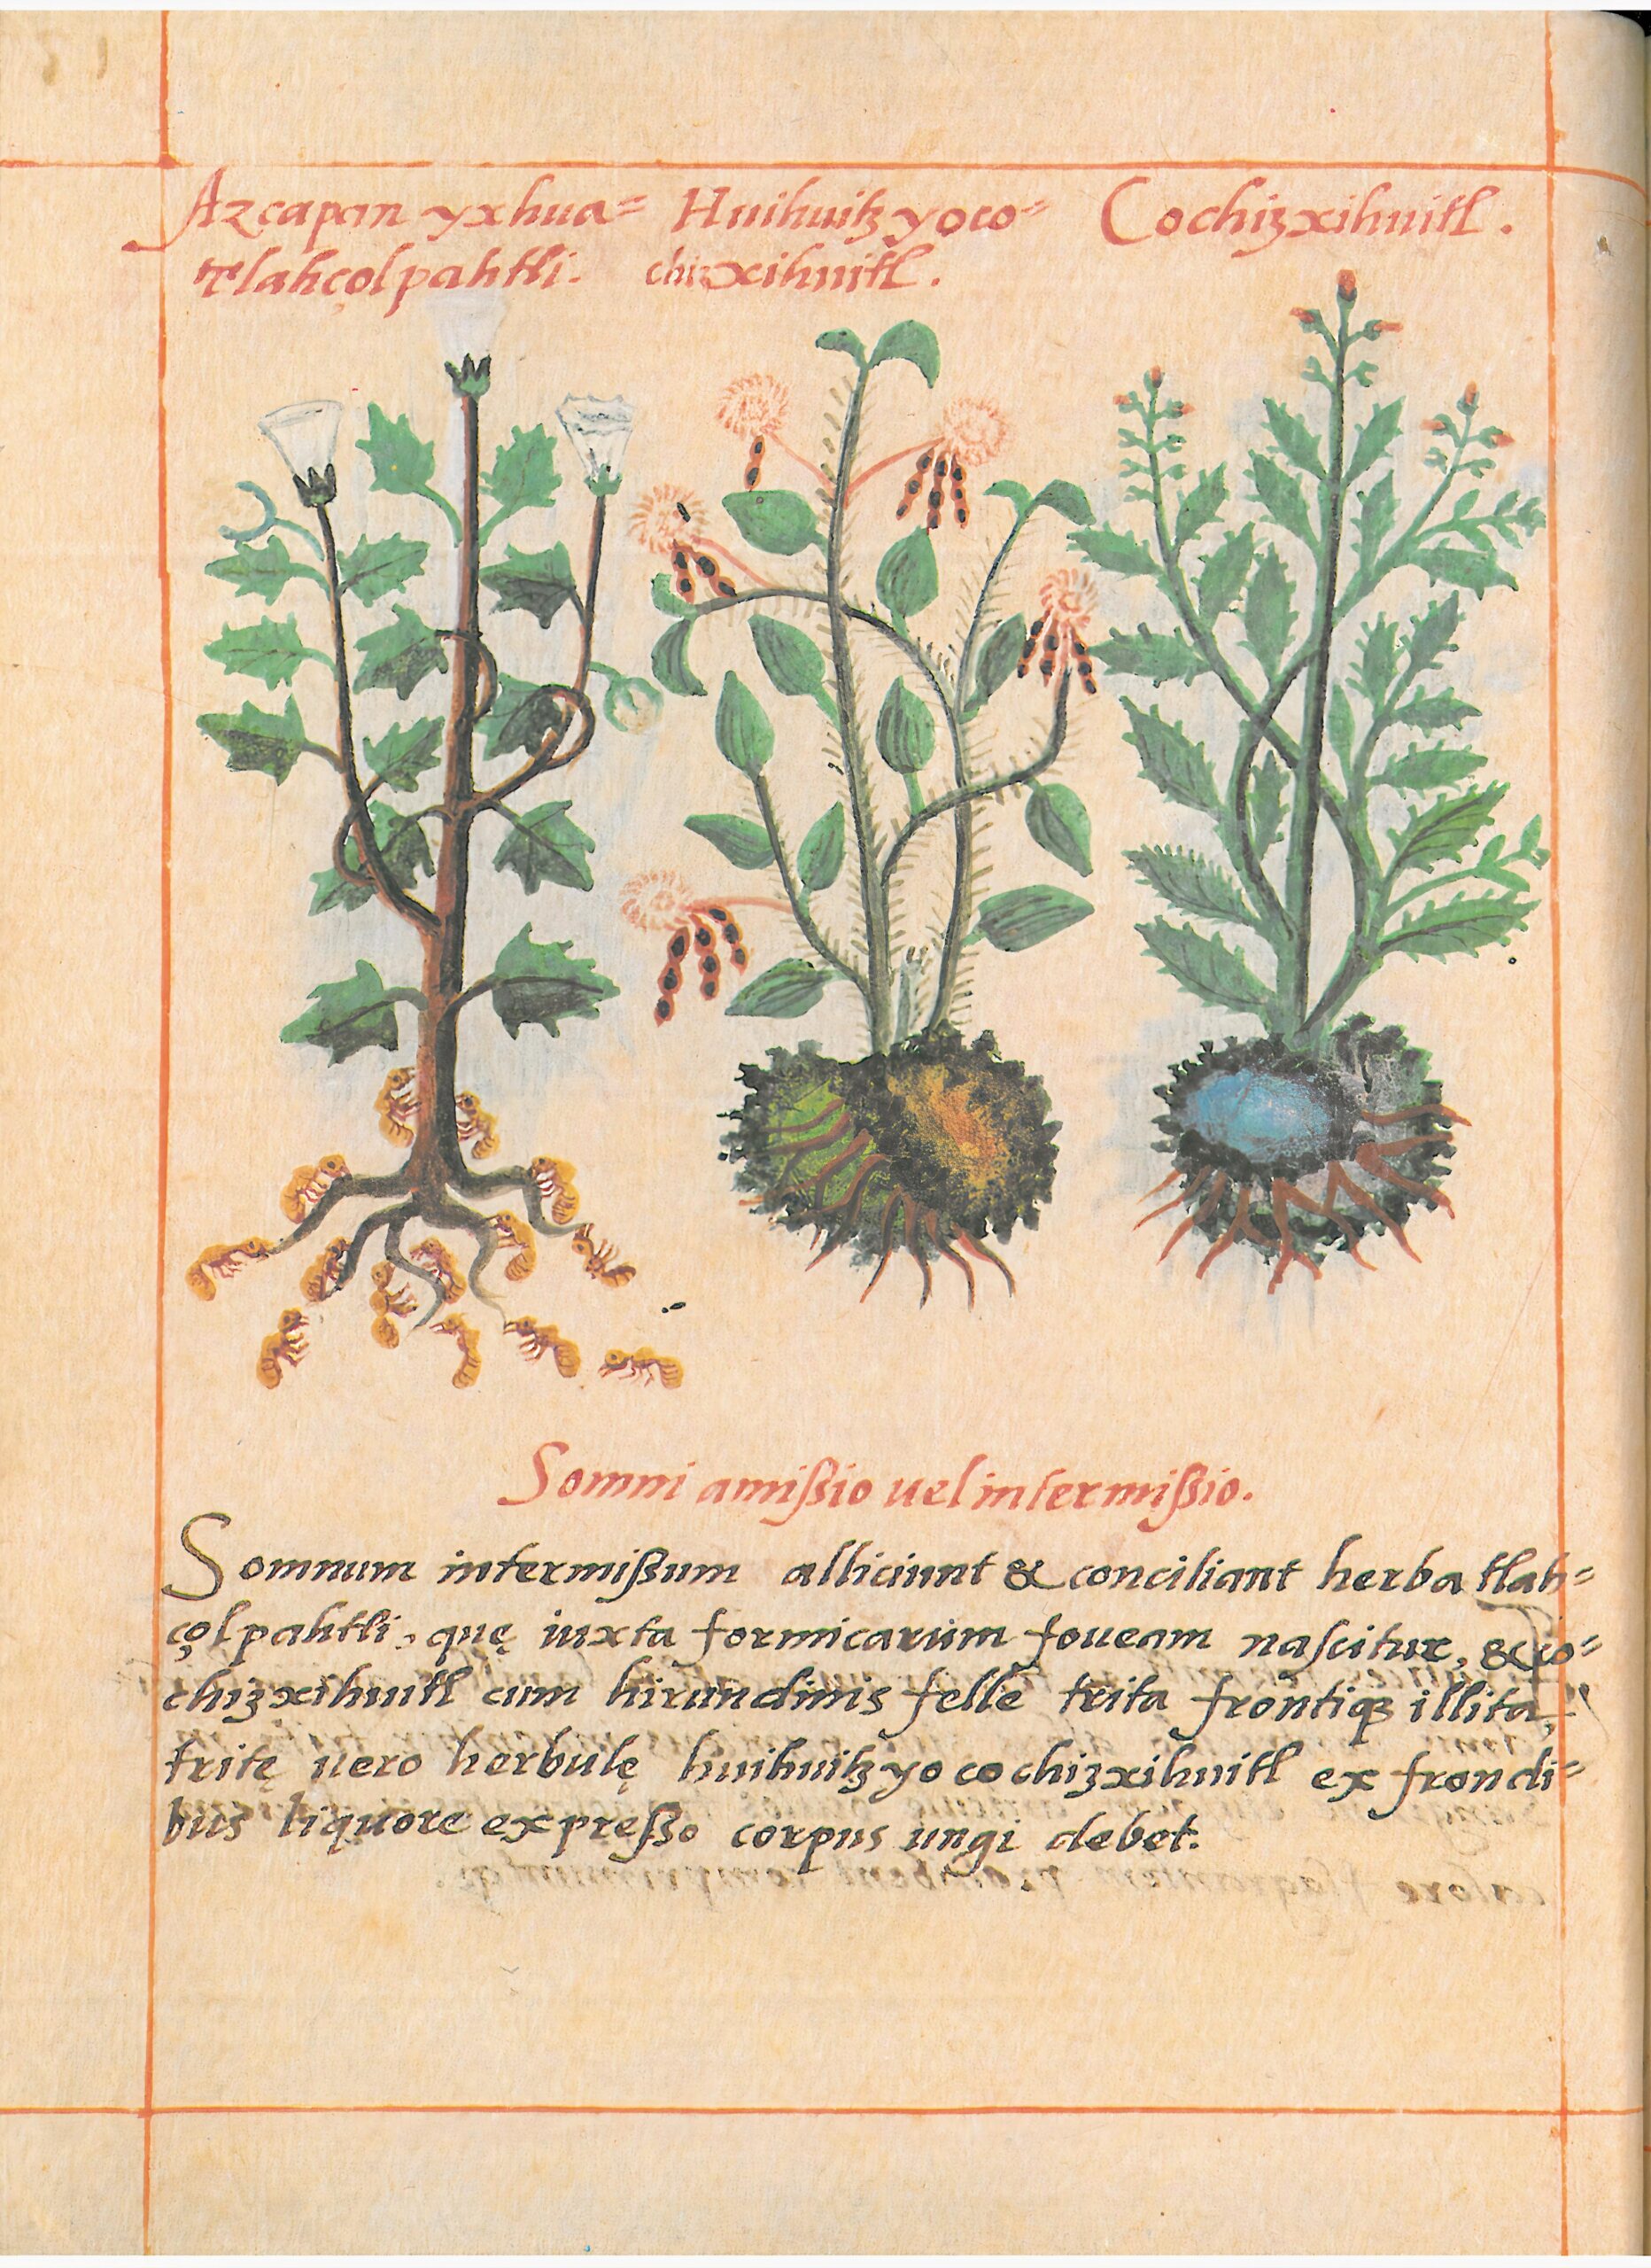 Azcapan yxhua= Huihuitzyoco= Cochizxihuitl.
tlahçolpahtli. chizxihuitl.
Somni amißio uel intermißio.
Somnum intermißum alliciunt & conciliant herba tlah=
çolpahtli, quę iuxta formicarum foueam nascitur, & co=
chizxihuitl cum hirundinis felle trita frontiqꝫ illita,
tritę uero herbulę huihuitzyocochizxihuitl ex frondi=
bus liquore expreßo corpus ungi debet.